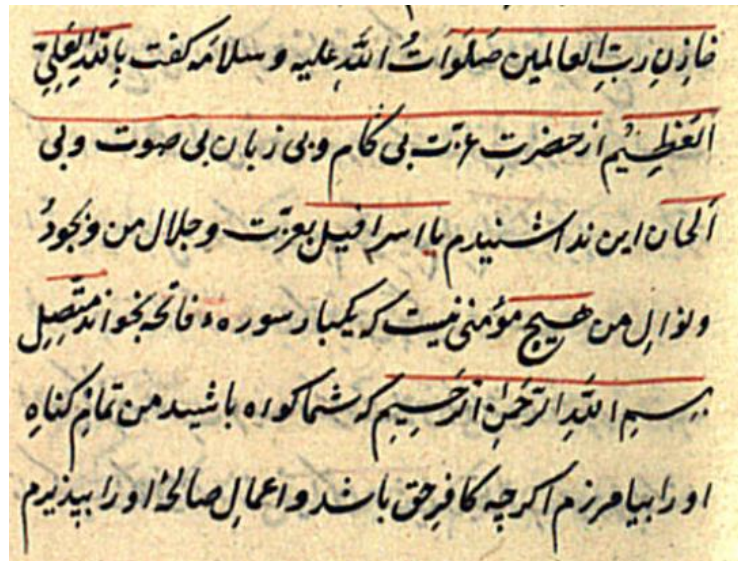 خازنِ ربّ العالمین صَلَوَاتُ اللّٰهِ علیه و سلامَه کفت بِاللّٰهِ العَلِیِّ
العَظِیْم از حضرتِ عزّت بی کام و بی زبان بی صوت و بی
اَلحان این ندا شنیدم یا اسرافیل بعزّت و جلال من وَبجودُ
و نوالِ من هیچ مؤمنی نیست که یکبار سوره فاتحه بخواند متّصِل
بِسمِ اللّٰهِ الرَّحمٰنِ الرَّحیمِ که شما کواه باشید من تمام کناهِ
او را بیامرزم اکرچه کافرِ حق باشد و اعمالِ صالحۀ او را بپذیرم